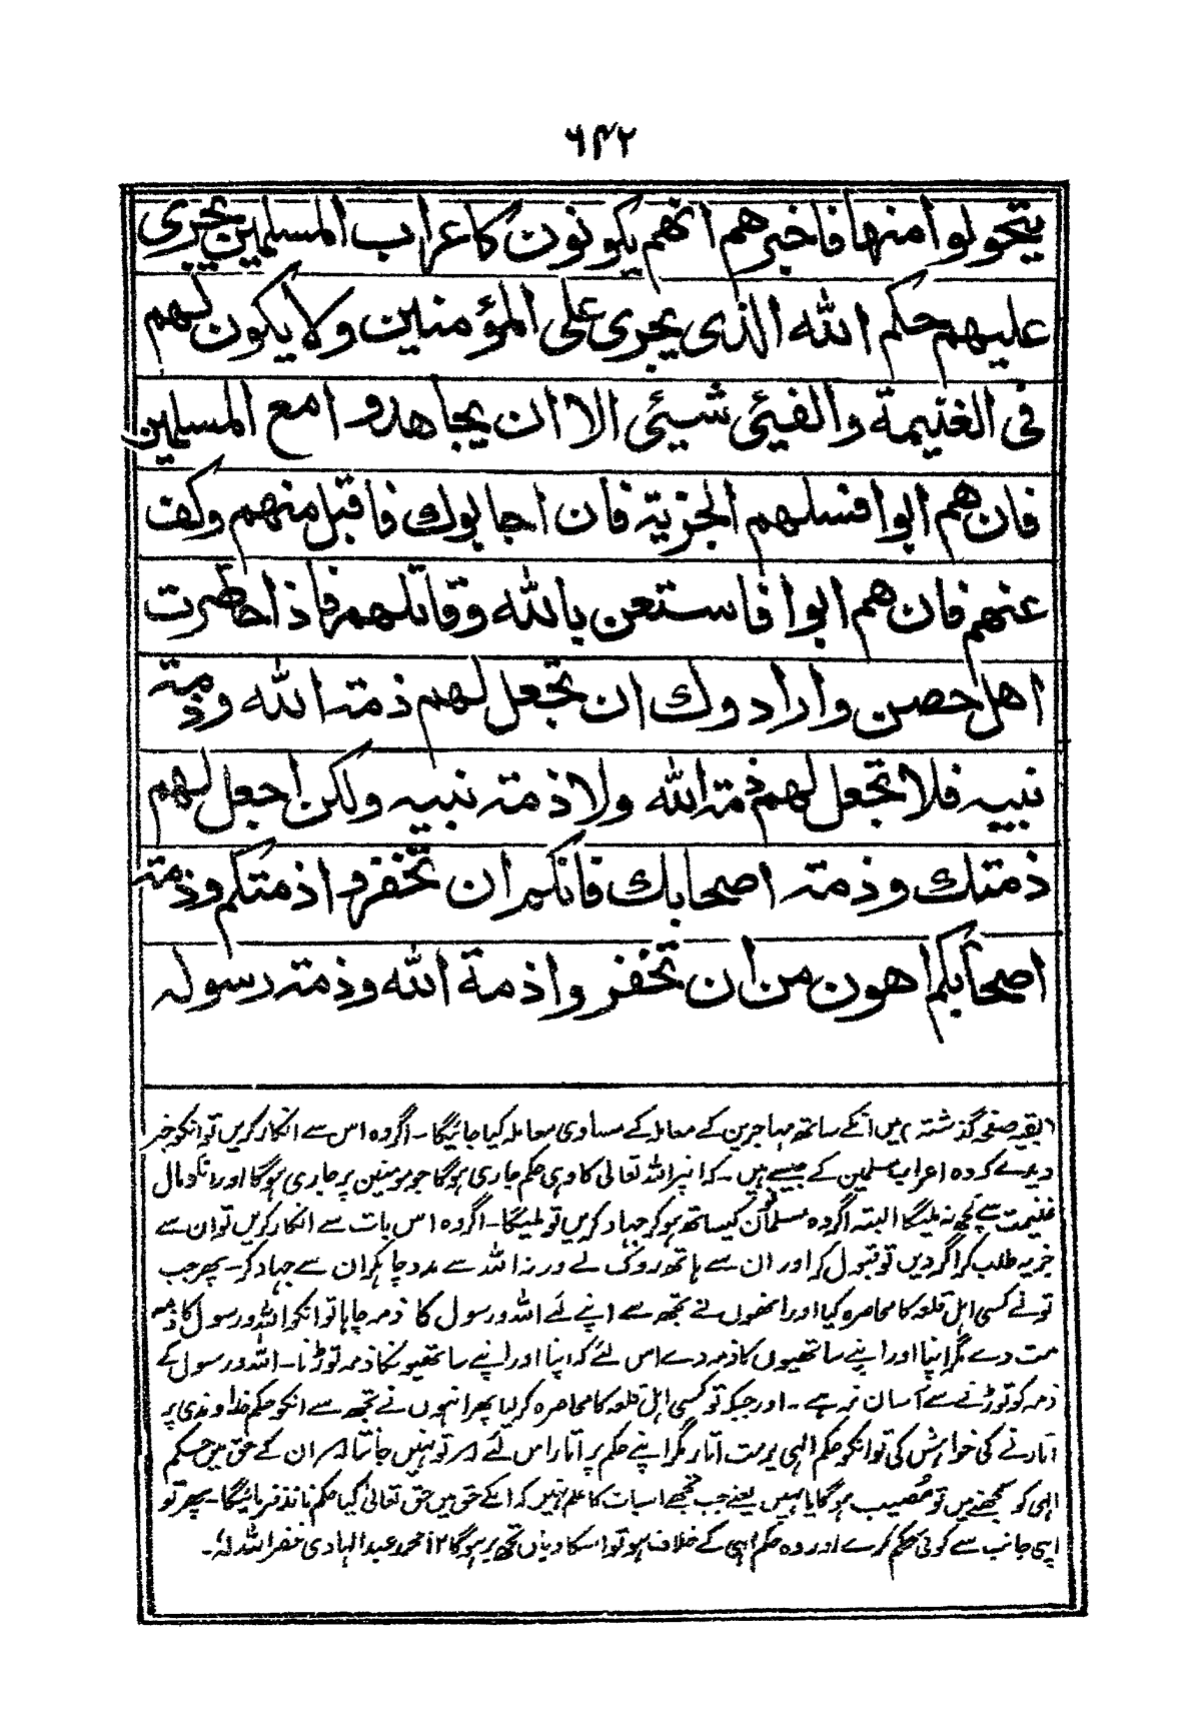 ۶۴۲
يتحولوا منها فاخبرهم انهم يكونون كاعراب المسلمين يجرى
عليهم حكم الله الذى يجرى على المؤمنين ولا يكون لهم
فى الغنيمة والفيئى شيئى الا ان يجاهدوا مع المسلمين
فان هم ابوا فسلهم الجزيته فان اجابوك فاقبل منهم وكف
عنهم فان هم ابوا فاستعن بالله وقاتلهم فاذا حاصرت
اهل حصن وارادوك ان تجعل لهم ذمته الله وذمته
نبيه فلا تجعل لهم ذمته الله ولا ذمته نبيه ولكن اجعل لهم
ذمتك وذمته اصحابك فانكم ان تخفروا ذمتكم وذمته
اصحابكم اهون من ان تخفروا ذمة الله وذمته رسوله
(بقیہ صفحہ گذشتہ) میں انکے ساتھ مہاجرین کے معاملہ کے مساوی معاملہ کیا جائیگا۔ اگر وہ اس سے انکار کریں تو انکو خبر
دیدے کہ وہ اعراب مسلمین کے جیسے ہیں۔ کہ انپر اللہ تعالی کا وہی حکم جاری ہوگا جو مومنین پر جاری ہوگا اور انکو مال
غنیمت سے کچھ نہ ملیگا البتہ اگر وہ مسلمانوں کیساتھ ہو کر جہاد کریں تو ملیگا۔ اگر وہ اس بات سے انکار کریں تو ان سے
جزیہ طلب کر اگر دیں تو قبول کر اور ان سے ہاتھ روک لے ورنہ اللہ سے مدد چاہکر ان سے جہاد کر۔ پھر جب
تونے کسی اہل قلعہ کا محاصرہ کیا اور انھوں نے تجھ سے اپنے لئے اللہ و رسول کا ذمہ چاہا تو انکو اللہ و رسول کا ذمہ
مت دے مگر اپنا اور اپنے ساتھیوں کا ذمہ دے اس لئے کہ اپنا اور اپنے ساتھیونکا ذمہ توڑنا۔ اللہ و رسول کے
ذمہ کو توڑنے سے آسان تر ہے۔ اور جبکہ تو کسی اہل قلعہ کا محاصرہ کرلیا پھر انہوں نے تجھ سے انکو حکم خداوندی پر
اتارنے کی خواہش کی تو انکو حکم الہی پر مت اتار مگر اپنے حکم پر اتار اس لئے کہ تو نہیں جانتا کہ ان کے حق میں حکم
الہی کو سمجھنے میں تو مصیب ہوگا یا نہیں یعنے جب تجھے اسبات کا علم نہیں کہ انکے حق میں حق تعالیٰ کیا حکم نافذ فرمائیگا۔ پھر تو
اپنی جانب سے کوئی حکم کرے اور وہ حکم الہی کے خلاف ہو تو اسکا وبال تجھ پر ہوگا ۱۲ محمد عبدالہادی غفر اللہ لہٗ۔